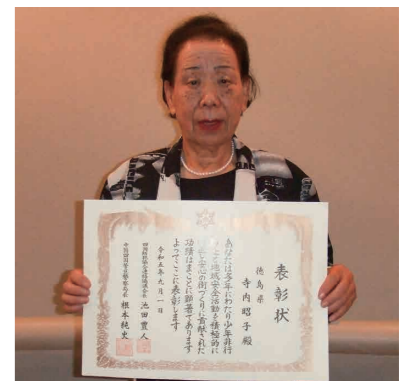 表彰状
徳島県
寺内昭子殿
あなたは多年にわたり少年非行
地域安全活動を積極的に
安心の街づくりに貢献された
功績はまことに顕著であります
よってここに表彰します
令和五年九月一日
池田豊人
根本純史